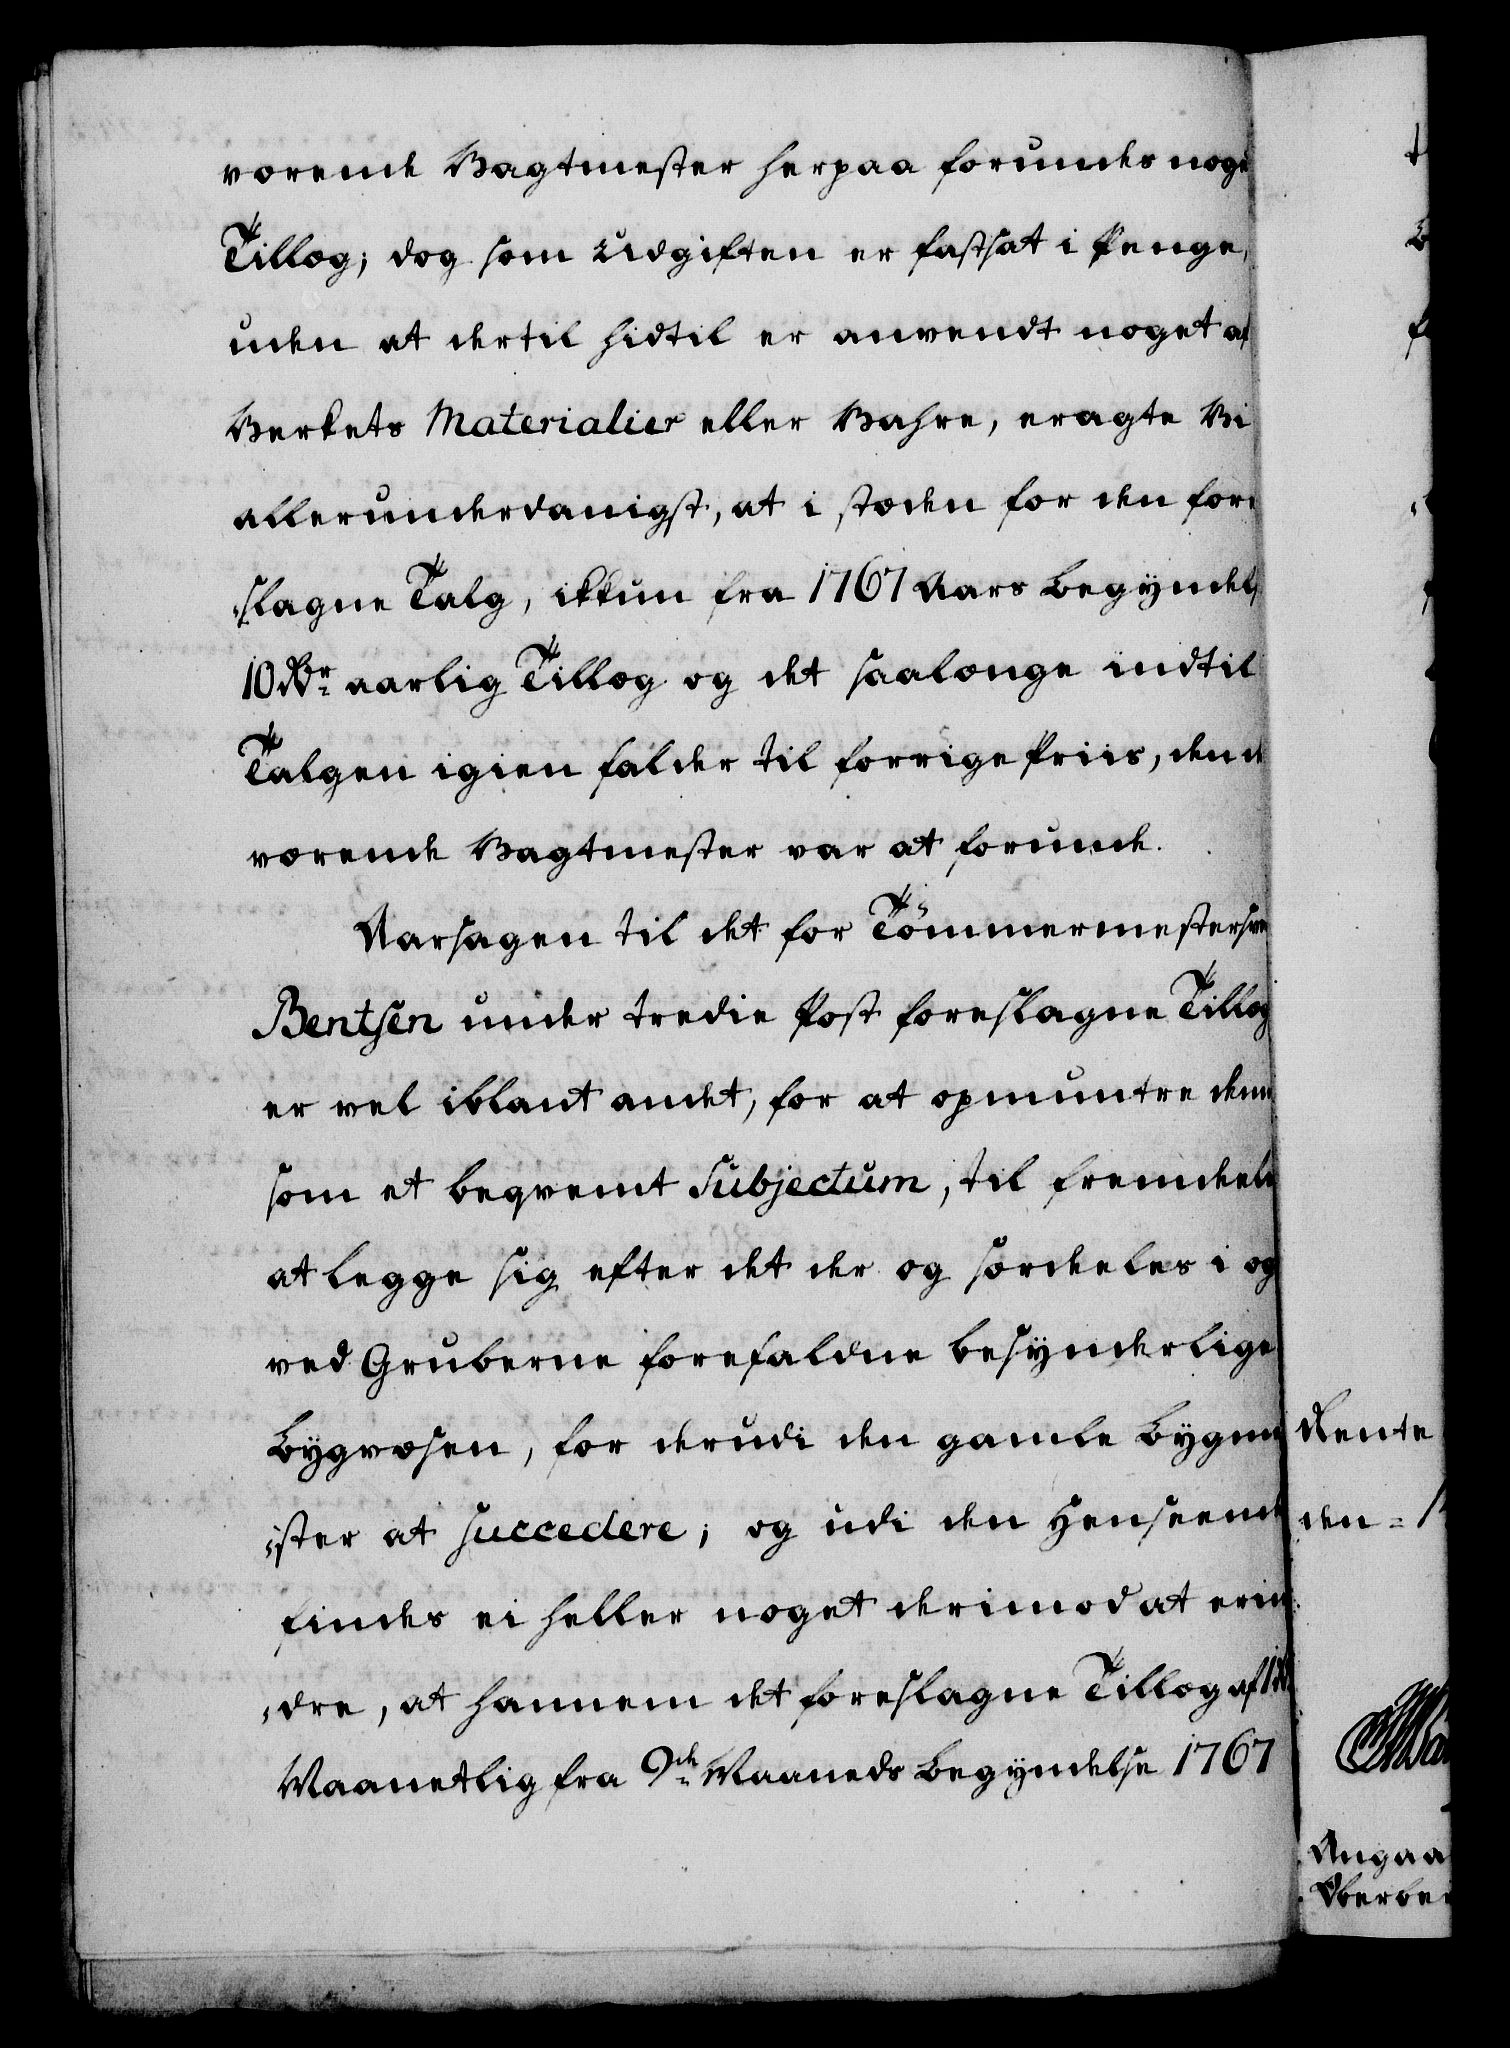 værende Vagtmester herpaa forundes noge
Tillæg; dog som Udgiften er fastsat i Penge,
uden at dertil hidtil er anvendt noget af
Verkets Materialier eller Vahre, eragte Vi
allerunderdanigst, at i stæden for den fore
slagne Talg, ikkun fra 1767 Aars Begyndelse
10 Rdr aarlig Tillæg og det saalænge indtil
Talgen igien falder til forrige Priis, den da
værende Vagtmester var at forunde.
Aarsagen til det for Tömmermestersven
Bentsen under tredie Post foreslagne Tillæg
er vel iblant andet, for at opmuntre denne
som et beqvemt Subjectum, til fremdeles
at legge sig efter det der og særdeles i og
ved Gruberne forefaldne besynderlige
Bygvæsen, for derudi den gamle Bygme
ster at succedere; og udi den Henseende
findes ei heller noget derimod at erin
dre, at hannem det foreslagne Tillæg af 1 Rd
Maanetlig fra 9de Maaneds Begyndelse 1767
Rente
den
Angaa
Oberber